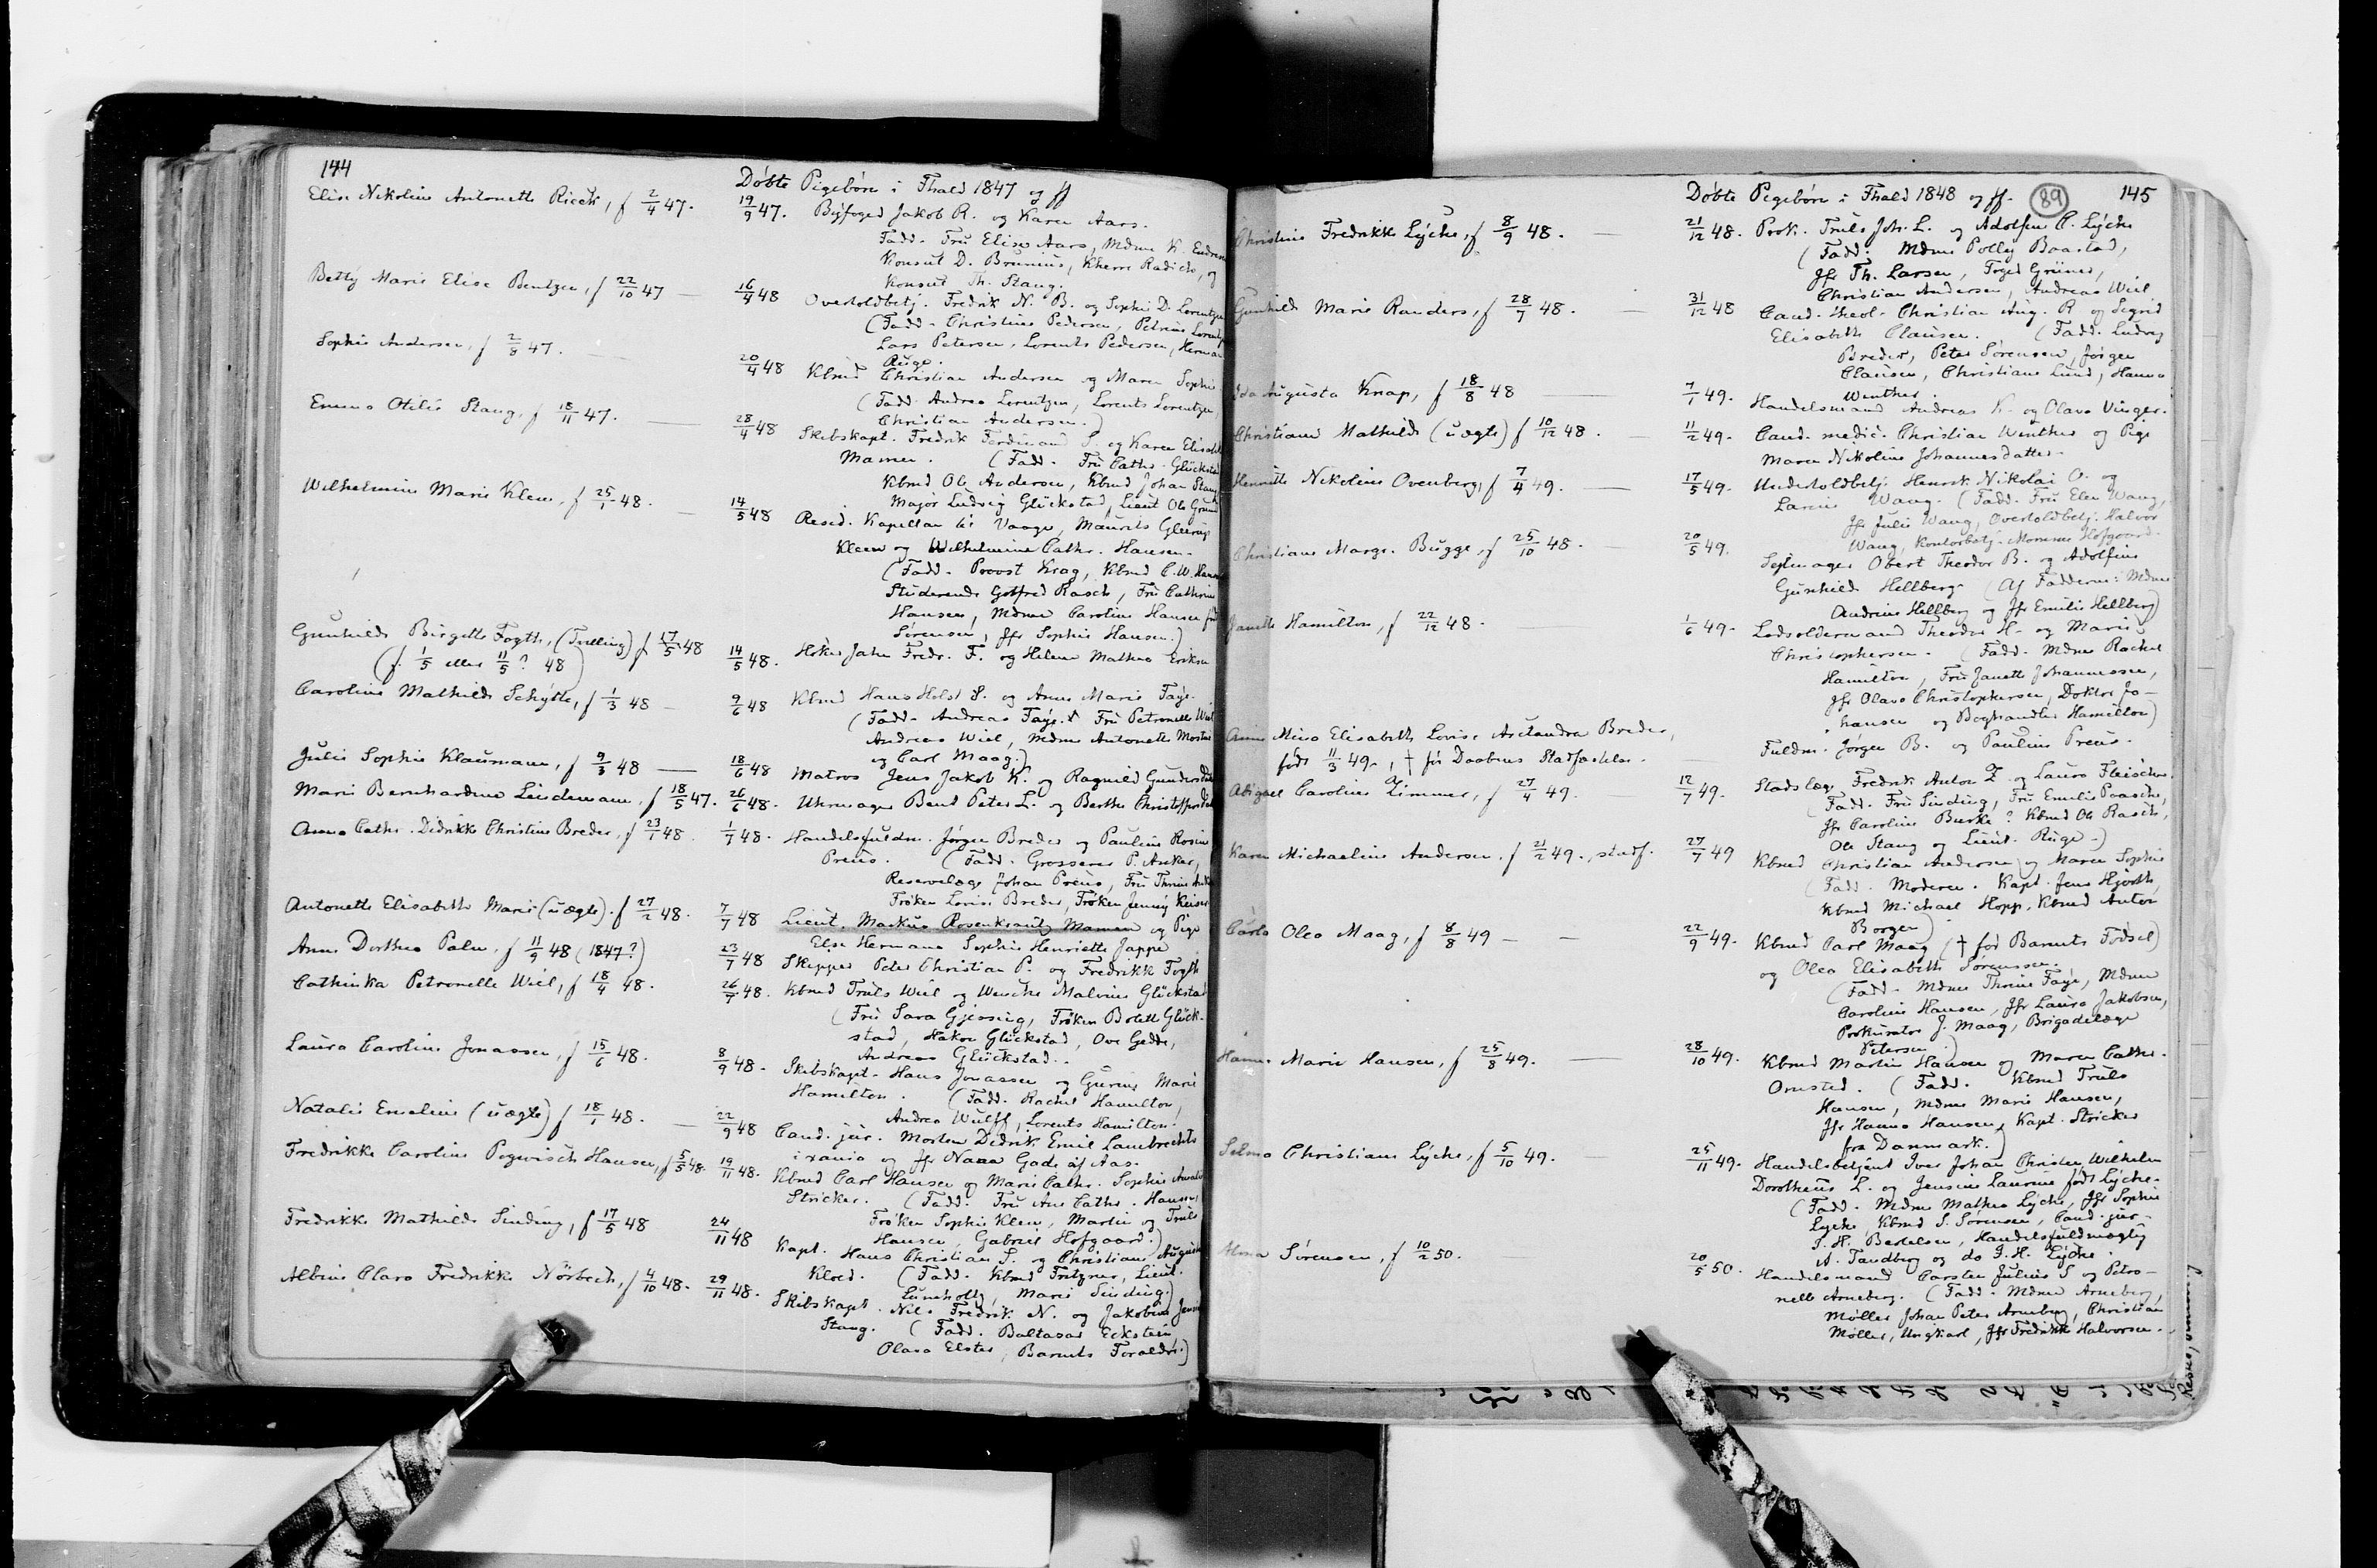 144
Døbte Pigebørn i Fhald 1847 og ff
Elise Nikoline Antonette Rieck, f 2/4 47.
19/9 47. Byfoged Jakob R. og Karen Aars.
Fadd. Fru Elise Aars, Mdme K.
Konsul D. Brunius, Kherre Radich, og
Konsul Th. Stang.
Betty Marie Elise Bentzen, f 22/10 47 —
16/4 48 Overtoldbetj. Fredrik N. B. og Sophie D. Lorentzen
(Fadd. Christine Pedersen, Petrine
Lars Petersen, Lorents Pedersen, Herman
Ruge.
Sophie Andersen, f 2/8 47.
20/4 48 Kbmd Christian Andersen og Maren Sophie
(Fadd. Andrea Lorentzen, Lorents Lorentzen,
Christian Andersen.)
Emma Otilie Stang, f 18/11 47. —
28/4 48 Skibskapt. Fredrik Ferdinand S. og Karen
Mamen. (Fadd. Fru Cathr. Glückstad
Kbmd Ole Andersen, Kbmd Johan Stang
Major Ludvig Glückstad, Lieut Ole
Wilhelmine Marie Klem, f 25/1 48. —
14/5 48 Resid. Kapellan til Vaage, Maurits Gleerup
Klem og Wilhelmine Cathr. Hansen.
(Fadd. Provst Krag, Kbmd C. W. Hansen
Studerende Gotfred Rasch, Fru Cathrine
Hansen, Mdme Caroline Hansen født
Sørensen, Jfr Sophie Hansen.)
Gunhilde Birgitte Fogth, (Tvilling) f 17/5 48
(f. 1/5 eller 11/5? 48)
14/5 48. Høker Jahn Fredr. F. og Helene Mathea Eriksen
Caroline Mathilde Schytte, f 1/3 48 —
9/6 48 Kbmd Hans Holst S. og Anne Marie Faye.
(Fadd. Andreas Faye. Fru Petronelle Wiel
Andreas Wiel, Mdme Antonette
og Carl Maag.)
Julie Sophie Klaumann, f 9/3 48 —
18/6 48 Matros Jens Jakob K. og Ragnild
Marie Bernhardine Lindemann, f 18/5 47.
26/6 48. Uhrmager Bent Peter L. og Berthe
Anna Cathr. Didrikke Christine Breder, f 23/1 48
1/7 48. Handelsfuldm. Jørgen Breder og Pauline Rosine
Preus. (Fadd. Grosserer P. Anker,
Reservelæge Johan Preus, Fru Thrine
Frøken Lovise Breder, Frøken Jenny
Antonette Elisabeth Marie (uægte). f 27/2 48.
7/7 48 Lieut. Markus Rosenkrantz Mamen og Pige
Else Hermana Sophie Henriette Jappe
Anne Dorthea Palm, f 11/9 48 (1847?)
23/7 48 Skipper Peter Christian P. og Fredrikke Fogth
Cathinka Petronelle Wiel, f 18/4 48.
26/7 48. Kbmd Truls Wiel og Wencke Malvine Glückstad
(Fru Sara Gjessing, Frøken Bolett Glück-
stad, Hakon Glückstad, Ove Gedde,
Andreas Glückstad.
Laura Caroline Jonassen, f 15/6 48.
8/9 48. Skibskapt. Hans Jonassen og Gurine Marie
Hamilton. (Fadd. Rachel Hamilton,
Andrea Wulff, Lorents Hamilton.
Natalie Emeline (uægte) f 18/1 48. —
22/9 48 Cand. jur. Morten Didrik Emil Lambrechts
i xania og Jfr Nanna Gade af Aas.
Fredrikke Caroline Pogwisch Hansen, f 5/5 48.
19/11 48. Kbmd Carl Hansen og Marie Cathr. Sophie
Stricker. (Fadd. Fru Ane Cathr. Hansen
Frøken Sophie Klein, Martin og Truls
Hansen, Gabriel Hofgaard.)
Fredrikke Mathilde Sinding, f 17/5 48
24/11 48 Kapt. Hans Christian S. og Christiane Augusta
Kloed. (Fadd. Kbmd Fritzner, Lieut.
Lumholtz, Marie Sinding.)
Albine Clara Fredrikke Nørbech, f 4/10 48.
29/11 48. Skibskapt. Nils Fredrik N. og Jakobine
Stang. (Fadd. Baltasar Eckstein,
Olava Elster, Barnets Forældre.)
Døbte Pigebørn i Fhald 1848 og ff. 89 145
Christine Fredrikke Lyche, f 8/9 48. —
21/12 48. Prok. Truls Joh. L. og Adolfine C. Lyche
(Fadd. Mdme Polly Baastad,
Jfr Th. Larsen, Foged Grüner,
Christian Andersen, Andreas Wiel
Gunhild Marie Randers, f 28/7 48. —
31/12 48 Cand. theol. Christian Aug. R og Sigrid
Elisabeth Clausen. (Fadd. Ludvig
Breder, Peter Sørensen, Jørgen
Clausen, Christiane Lund, Hanna
Winther.
Ida Augusta Knap, f 18/8 48 —
7/1 49. Handelsmand Andreas K. og Olava Vinger.
Christiane Mathilde (uægte) f 10/12 48.
11/2 49. Cand. medic. Christian Winther og Pige
Maren Nikoline Johannesdatter.
Henriette Nikoline Ovenberg, f 7/4 49. —
17/5 49. Undertoldbetj. Henrik Nikolai O. og
Larine Wang. (Fadd. Fru Elen Wang,
Jfr Julie Wang, Overtoldbetj. Halvor
Wang, Kontorbetj. Momme Hofgaard.
Christiane Margr. Bugge, f 25/10 48. —
20/5 49. Sejlmager Obert Theodor B. og Adolfine
Gunhild Hellberg. (Af Fadderne: Mdme
Andrine Hellberg og Jfr Emilie Hellberg)
Janette Hamilton, f 22/12 48.
1/6 49. Lodsoldermand Theodor H. og Marie
Christophersen. (Fadd. Mdme Rachel
Hamilton, Fru Janett Johannessen,
Jfr Olava Christophersen, Doktor Jo-
hansen og Boghandler Hamilton)
Anne Mina Elisabeth Lovise Alexandra Breder,
født 11/3 49., † før Daabens Stadfæstelse.
Fuldm. Jørgen B. og Pauline Preus.
Abigael Caroline Zimmer, f 27/4 49. —
12/7 49. Stadslæge Fredrik Anton Z og Laura Fleischer.
(Fadd. Fru Sinding, Fru Emilie Paasche,
Jfr Caroline Burke? Kbmd Ole Rasch,
Ole Stang og Lieut. Ruge.)
Karen Michaeline Andersen, f 21/2 49., stadf.
27/7 49 Kbmd Christian Andersen og Maren Sophie
(Fadd. Moderen. Kapt. Jens Hjorth,
Kbmd Michael Hopp, Kbmd Anton
Borgen)
Carla Olea Maag, f 8/8 49 — —
22/9 49. Kbmd Carl Maag († før Barnets Fødsel)
og Olea Elisabeth Sørensen.
(Fadd. Mdme Thrine Faye, Mdme
Caroline Hansen, Jfr Laura Jakobsen,
Prokurator J. Maag, Brigadelæge
Petersen.)
Hanne Marie Hansen, f 25/8 49. —
28/10 49. Kbmd Martin Hansen og Maren Cathr.
Ornsted. (Fadd. Kbmd Truls
Hansen, Mdme Marie Hansen,
Jfr Hanna Hansen, Kapt. Stricker
fra Danmark.)
Selma Christiane Lyche, f 5/10 49. —
25/11 49. Handelsbetjent Iver Johan Christen Wilhelm
Dorotheus L. og Jensine Laurine født Lyche.
(Fadd. Mdme Mathea Lyche, Jfr Sophie
Lyche, Kbmd S. Sørensen, Cand. jur.
J. H. Bertelsen, Handelsfuldmægtig
A. Tandberg og do J. H. Lyche.
Alma Sørensen, f 10/2 50.
20/5 50. Handelsmand Carsten Julius S og Petro-
nelle Arneberg. (Fadd. Mdme Arneberg,
Møller Johan Peter Arneberg, Christian
Møller, Ungkarl, Jfr Fredrikke Halvorsen.